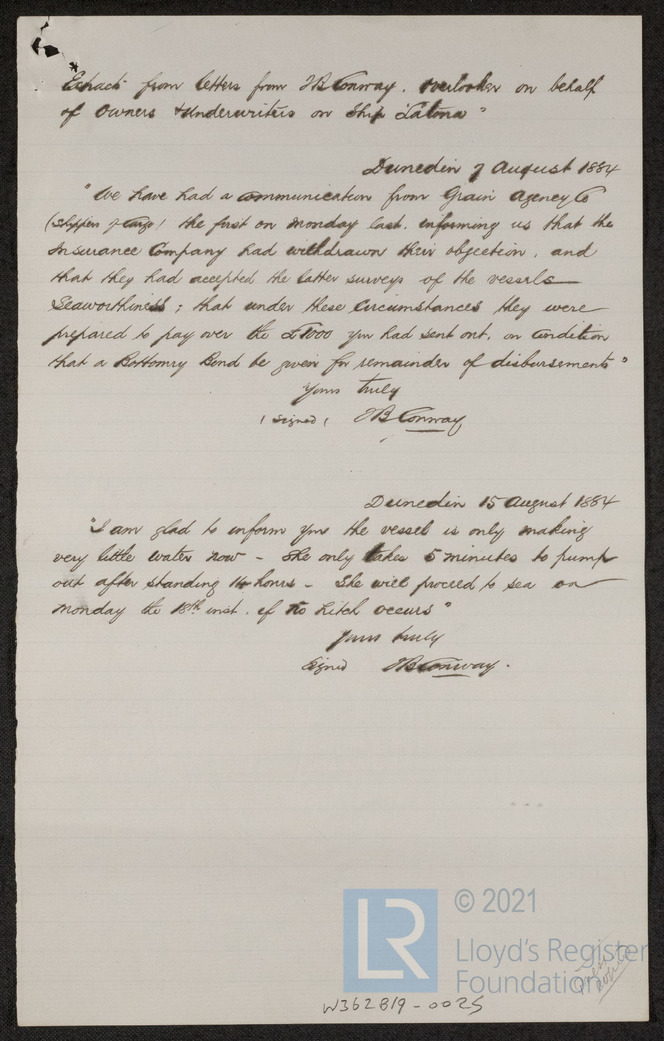 Extract from letters from JB Conway, Overlooker on behalf
of Owners & Underwriters on Ship "Latona"
Dunedin 7 August 1884
"We have had a communication from Grain Agency Co
(Shippers of Cargo) the first on Monday last, informing us that the
Insurance Company had withdrawn their objection, and
that they had accepted the latter surveys of the vessels
Seaworthiness; that under these Circumstances they were
prepared to pay over the £1000 you had sent out, on Condition
that a Bottomry Bond be given for remainder of disbursements"
Yours truly
(signed) JB Conway
Dunedin 15 August 1884
"I am glad to inform you the vessel is only making
very little water now - She only takes 5 minutes to pump
out after standing 14 hours - She will proceed to sea on
Monday the 18th inst. if no hitch occurs"
Yours truly
Signed JB Conway.
LR
© 2021
Lloyd's Register
Foundation
W362819-0025